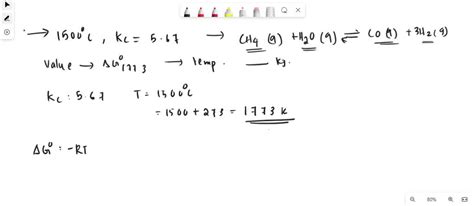 → 1500°C, Kc = 5.67 → CH4(g) + H2O(g) ⇌ CO(g) + 3H2(g)
Value → ΔG°1773 → Temp. ___ Kj.
Kc : 5.67 T = 1500°C
= 1500 + 273 = 1773 K
ΔG° = -RT
80%